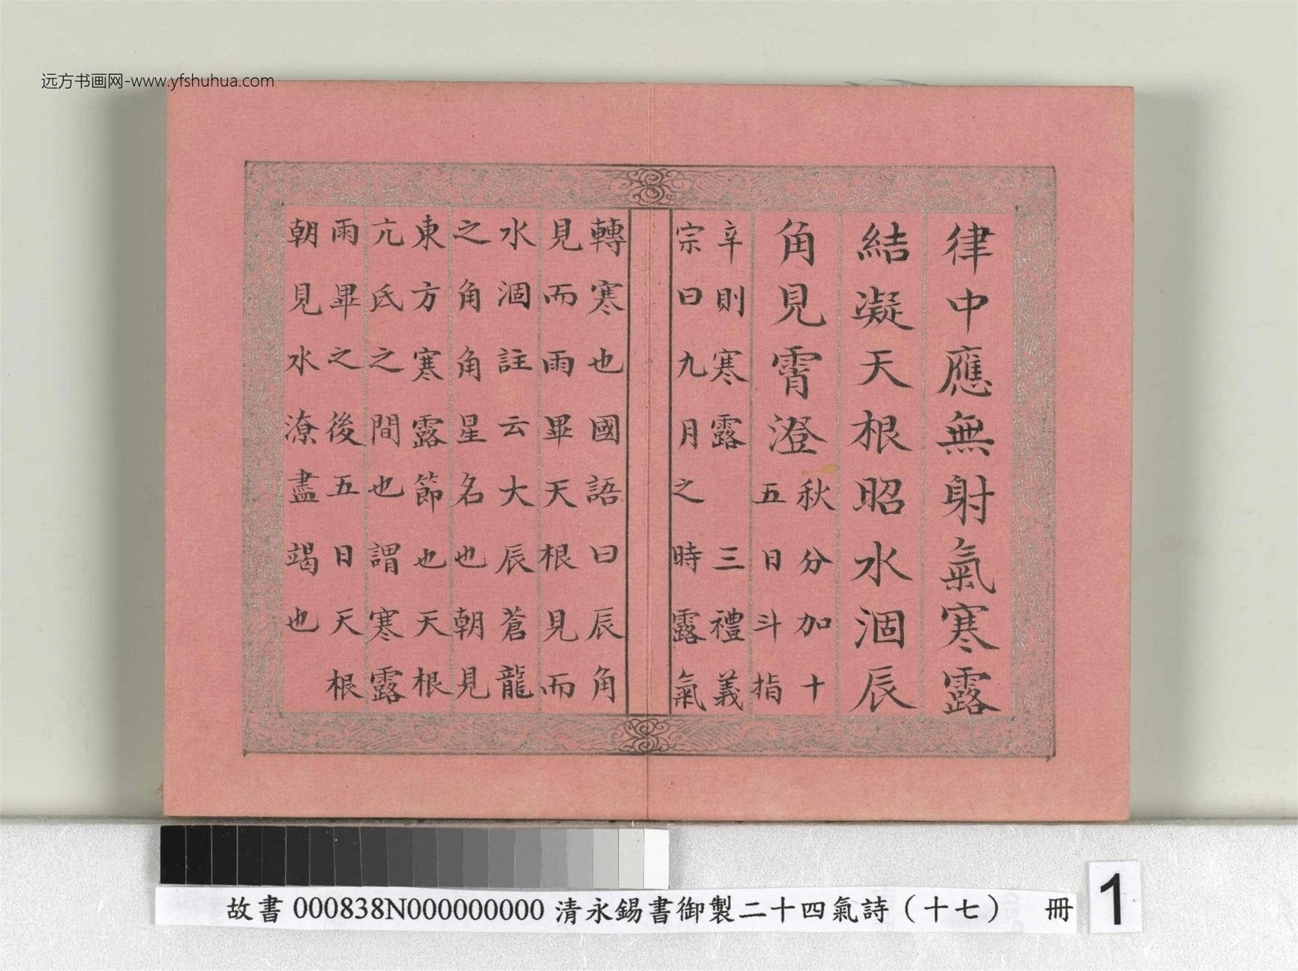 远方书画网-www.yfshuhua.com
律中應無射氣寒露
結凝天根昭水涸辰
角見霄澄
秋分加十
五日斗指
辛則寒露三禮義
宗曰九月之時露氣
轉寒也國語曰辰角
見而雨畢天根見而
水涸註云大辰蒼龍
之角角星名也朝見
東方寒露節也天根
亢氐之間也謂寒露
雨畢之後五日天根
朝見水潦盡竭也
故書 000838N000000000 清永錫書御製二十四氣詩（十七） 冊
1